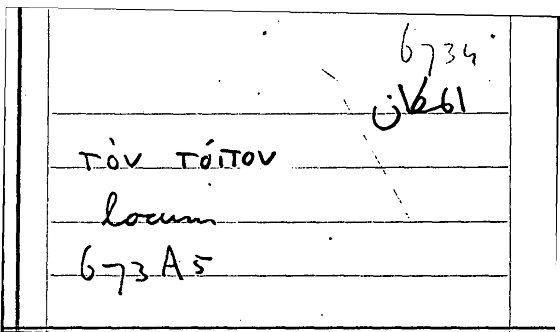 6734
المكان
τὸν τόπον
locum
673A5